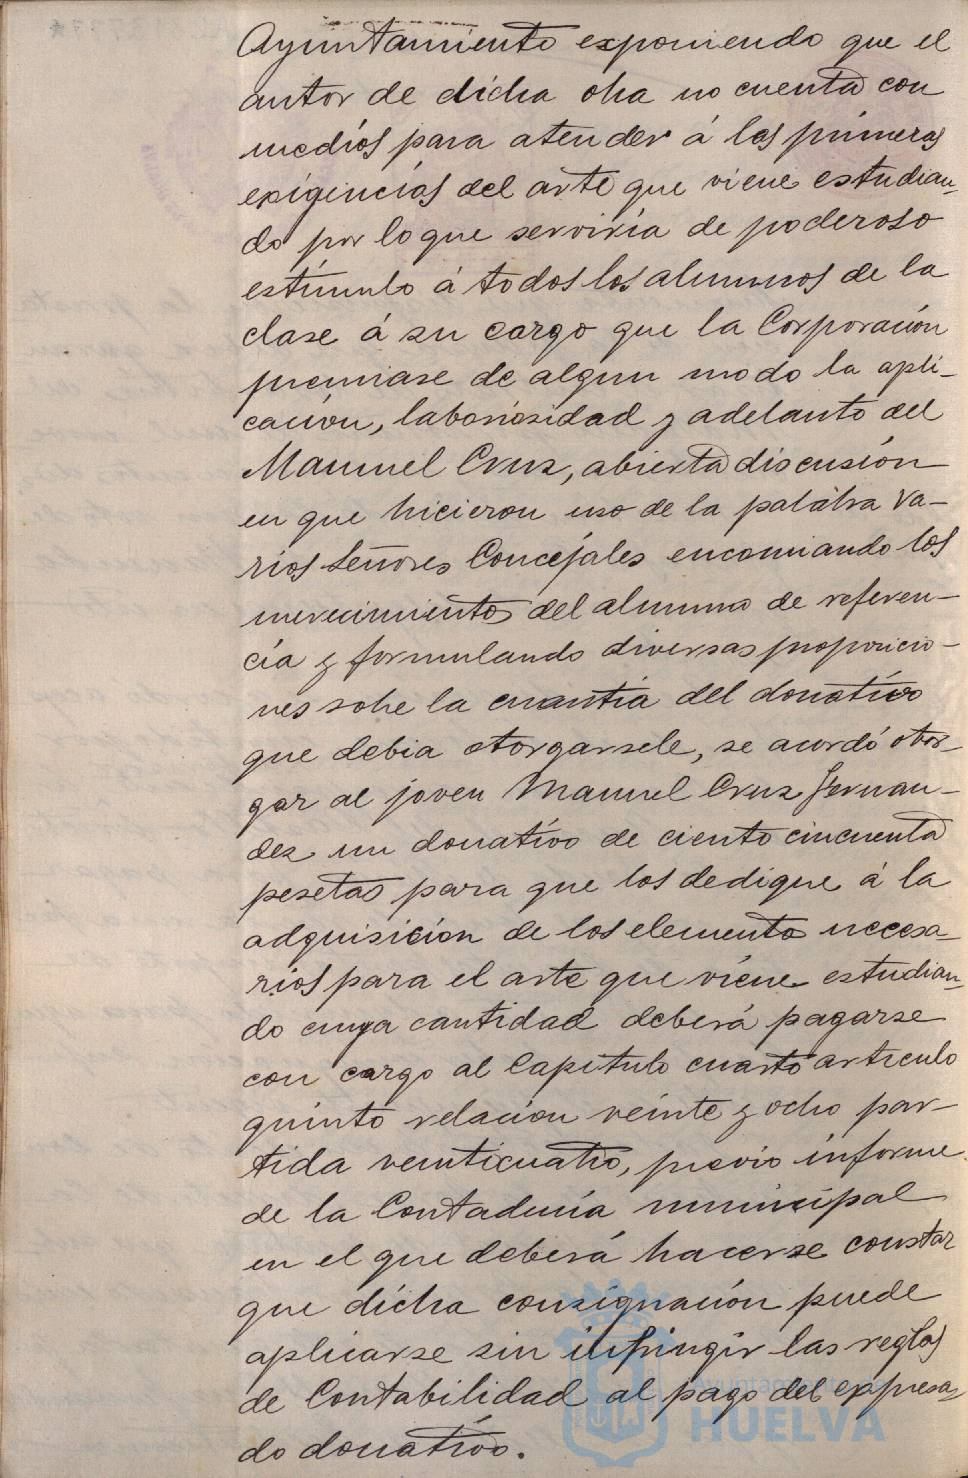 Ayuntamiento exponiendo que el
autor de dicha obra no cuenta con
medios para atender á las primeras
exigencias del arte que viene estudian-
do por lo que serviria de poderoso
estímulo á todos los alumnos de la
clase á su cargo que la Corporación
premiase de algun modo la apli-
cación, laboriosidad y adelanto del
Manuel Cruz, abierta discusión
en que hicieron uso de la palabra va-
rios Señores Concejales encomiando los
merecimientos del alumno de referen-
cia y formulando diversas proposicio-
nes sobre la cuantia del donativo
que debia otorgarsele, se acordó otor-
gar al joven Manuel Cruz Fernan-
dez un donativo de ciento cincuenta
pesetas para que los dedique á la
adquisición de los elementos necesa-
rios para el arte que viene estudian-
do cuya cantidad deberá pagarse
con cargo al Capitulo cuarto articulo
quinto relacion veinte y ocho par-
tida veinticuatro, previo informe
de la Contaduria municipal
en el que deberá hacerse constar
que dicha consignación puede
aplicarse sin infringir las reglas
de Contabilidad al pago del expresa-
do donativo.
Ayuntamiento de
HUELVA